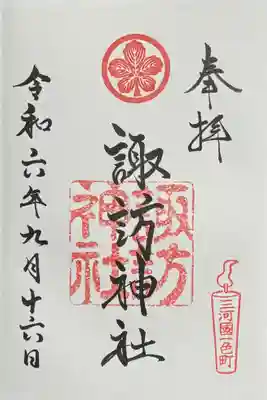 奉拝
三河國一色町
諏訪神社
諏訪神社
令和六年九月十六日